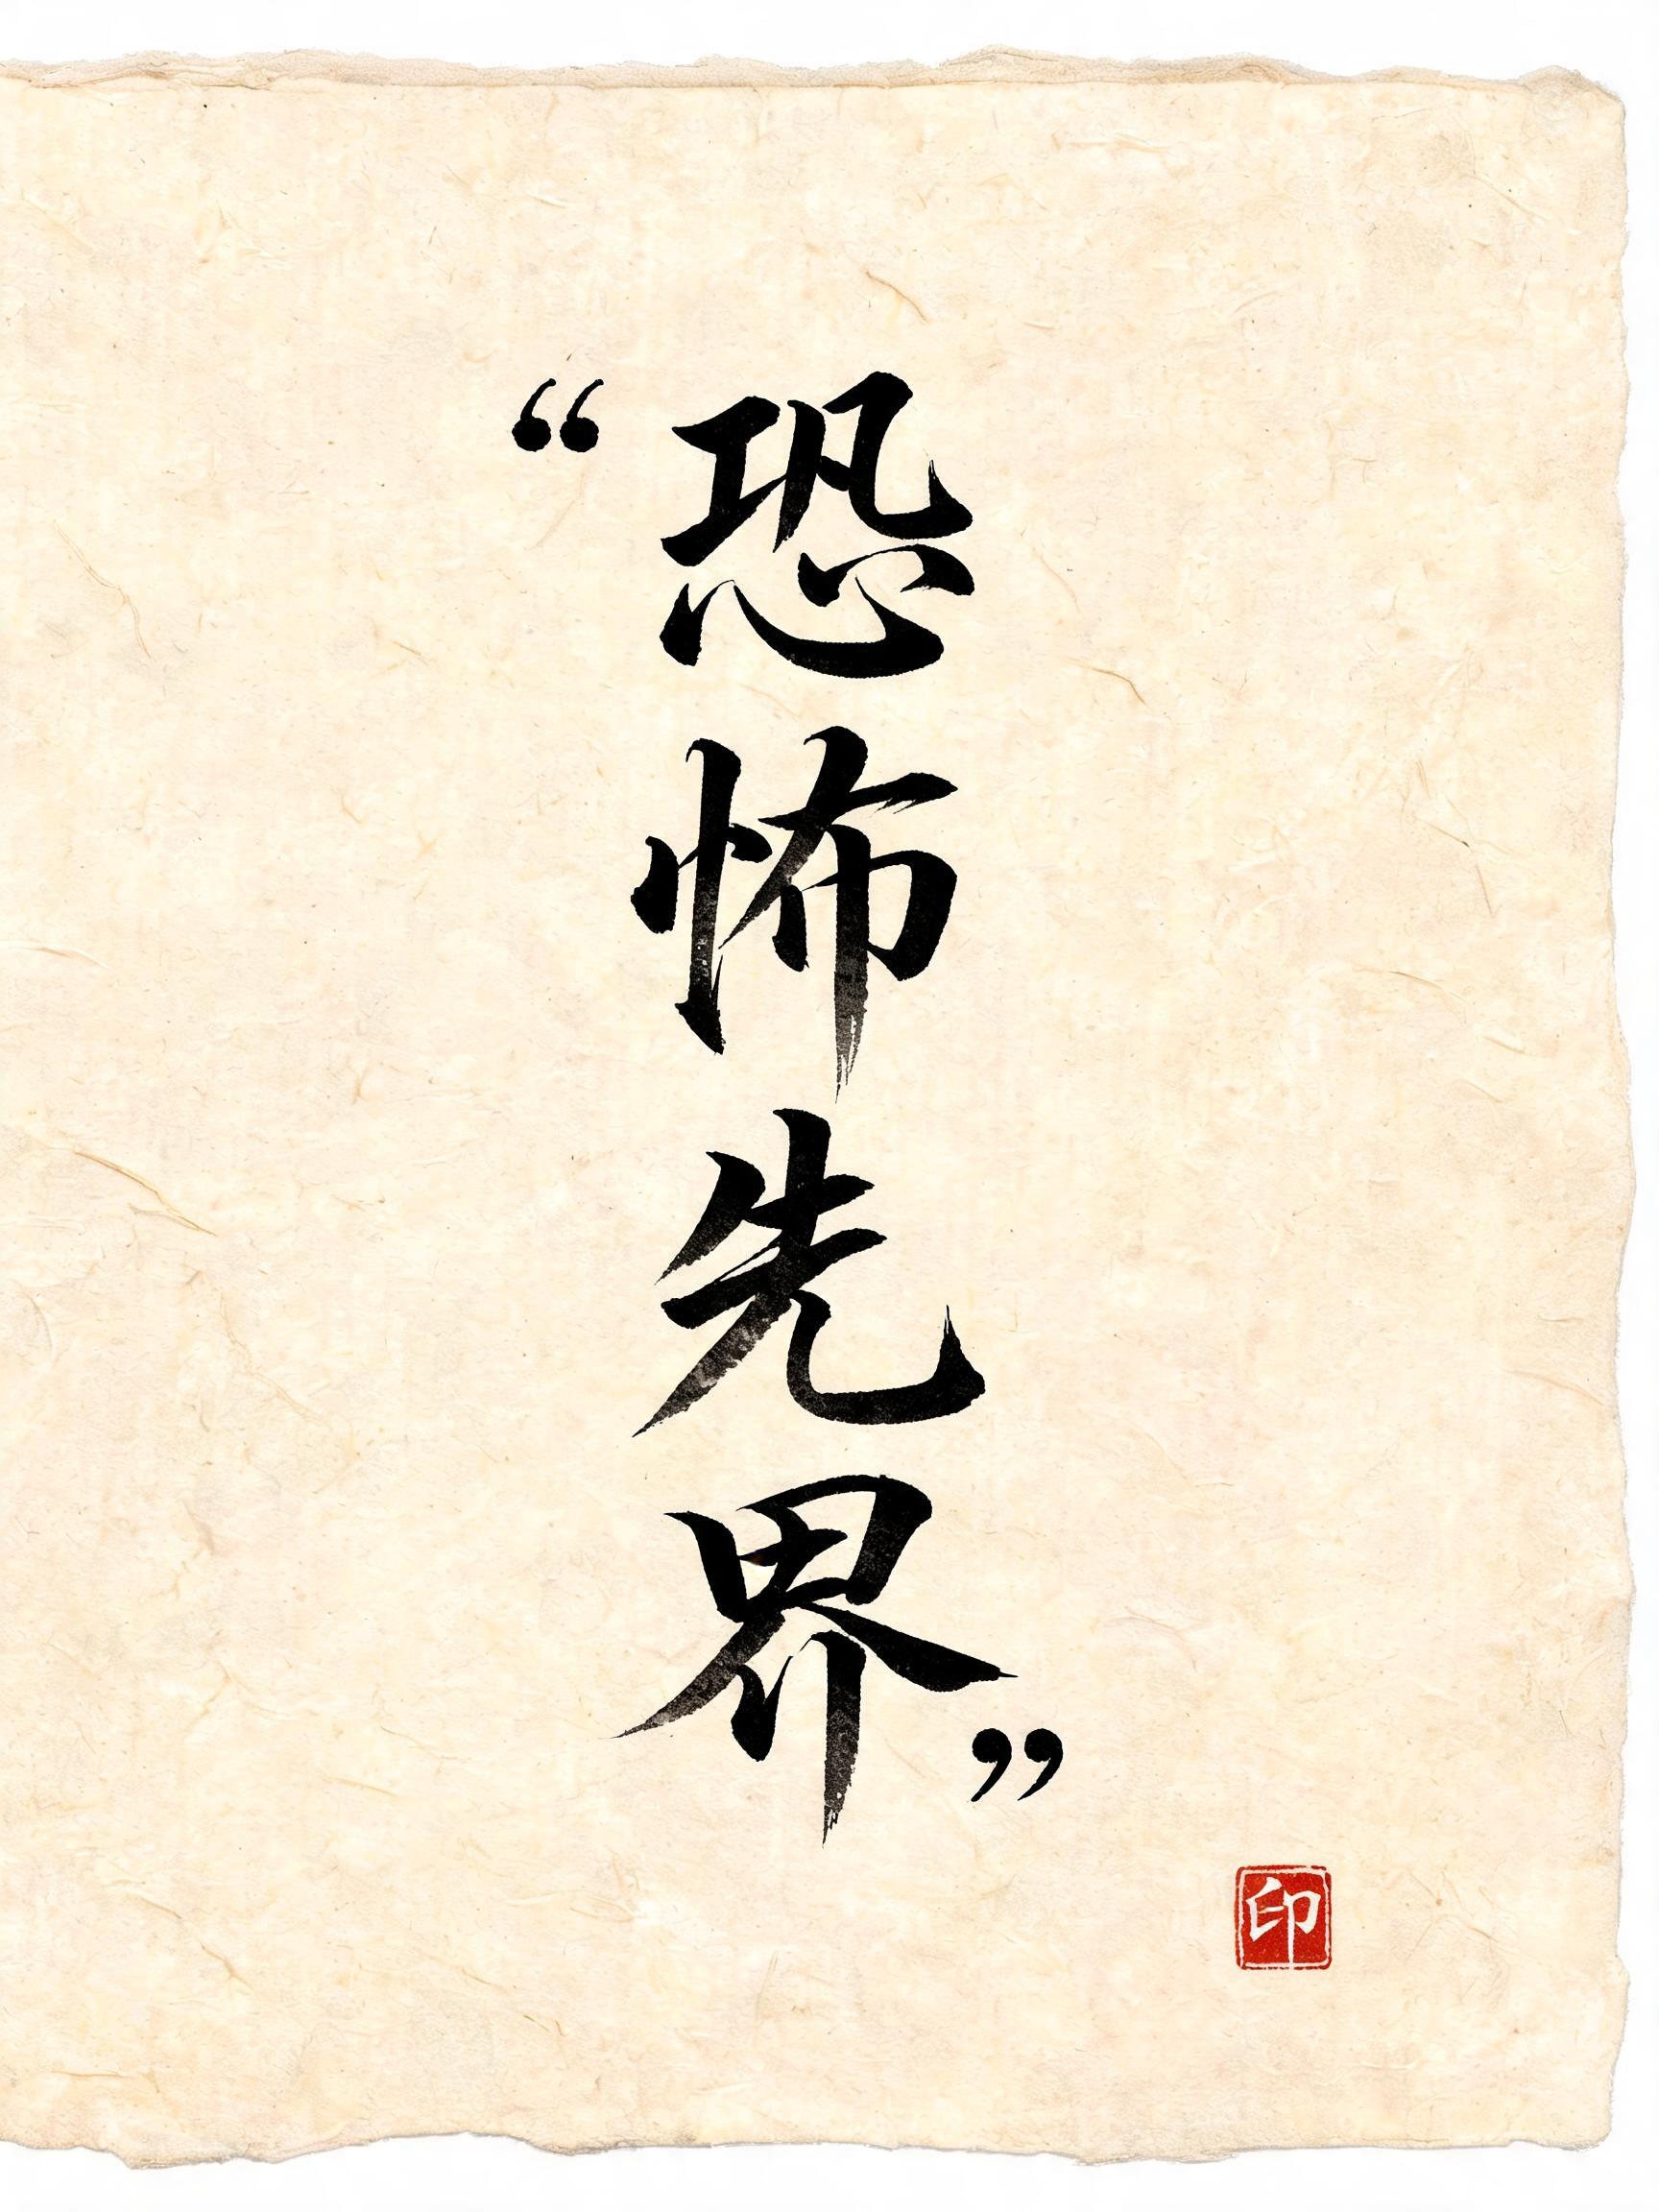 “恐怖先界”
印